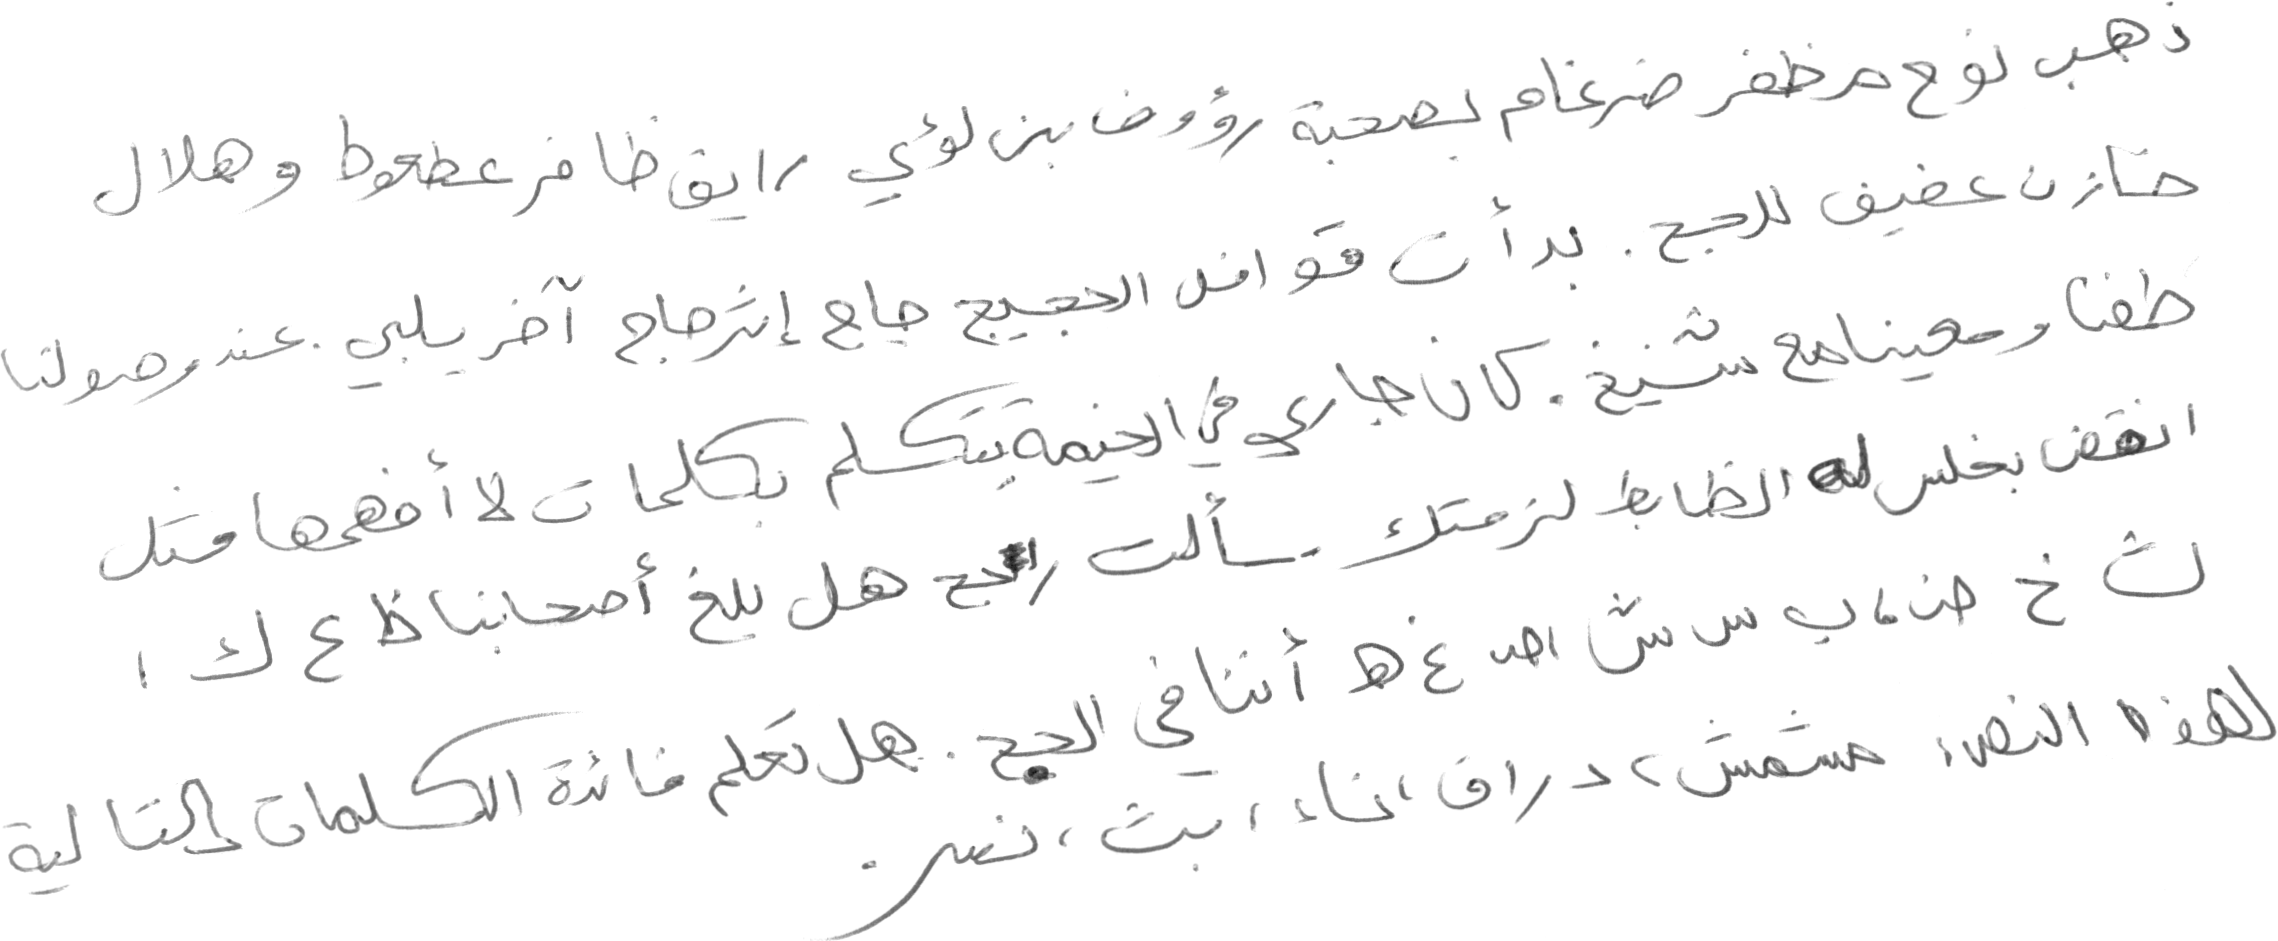 ذهب نوح مظفر ضرغام بصحبة رؤوف بن لؤي رايق ظافر عطعوط وهلال
خازن عفيف للحج. بدأت قوافل الحجيج حاج إثر حاج آخر يلبي. عند وصولنا
طفنا وسعينا مع شيخ. كان جاري في الخيمة يتكلم بكلمات لا أفهمها مثل
انقض بخلسه الظابط لزمتك. سألت الحج هل بلغ أصحابنا ظ ع ك ا
ث خ ض ء ب س ش اص غ ه أننا في الحج. هل تعلم فائدة الكلمات التالية
لهذه النص: مشمش، دراق، ناء، بث، نص.